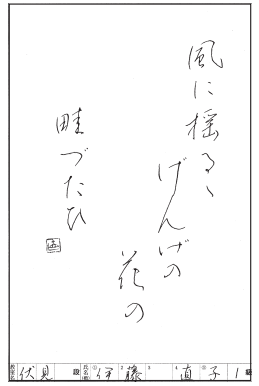 風に揺るゝ
げんげの
花の
畦づたひ
教室名 伏見 段 氏名 伊藤直子 1級